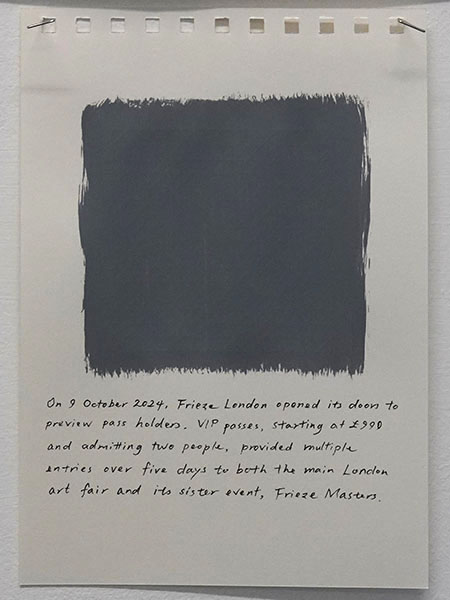 On 9 October 2024, Frieze London opened its doors to
preview pass holders. VIP passes, starting at £990
and admitting two people, provided multiple
entries over five days to both the main London
art fair and its sister event, Frieze Masters.